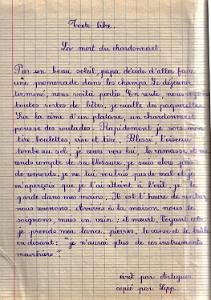 Texte libre.
La mort du chardonneret.
Par un beau soleil, papa décida d'aller faire
une promenade dans les champs. Le déjeuner
terminé, nous voilà partis. En route, nous voyons
toutes sortes de bêtes, je cueille des paquerettes.
Sur la cime d'un platane, un chardonneret
pousse des roulades. Rapidement je sors mon
tire boulettes vise et tire. Blessé l'oiseau
tombe au sol, je cours vers lui, le ramasse, et me
rends compte de sa blessure, je suis alors pris
de remords, je ne lui voulais pas de mal et je
m'aperçois que je l'ai atteint à l'œil, je le
garde dans mes mains. Il est l'heure de rentrer
nous revenons. Arrivés à la maison, nous le
soignons, mais en vain; il meurt, voyant cela
je prends mon lance, pierres, le casse et le brûle
en disant: "je n'aurai plus de ces instruments
meurtriers"
écrit par
copié par